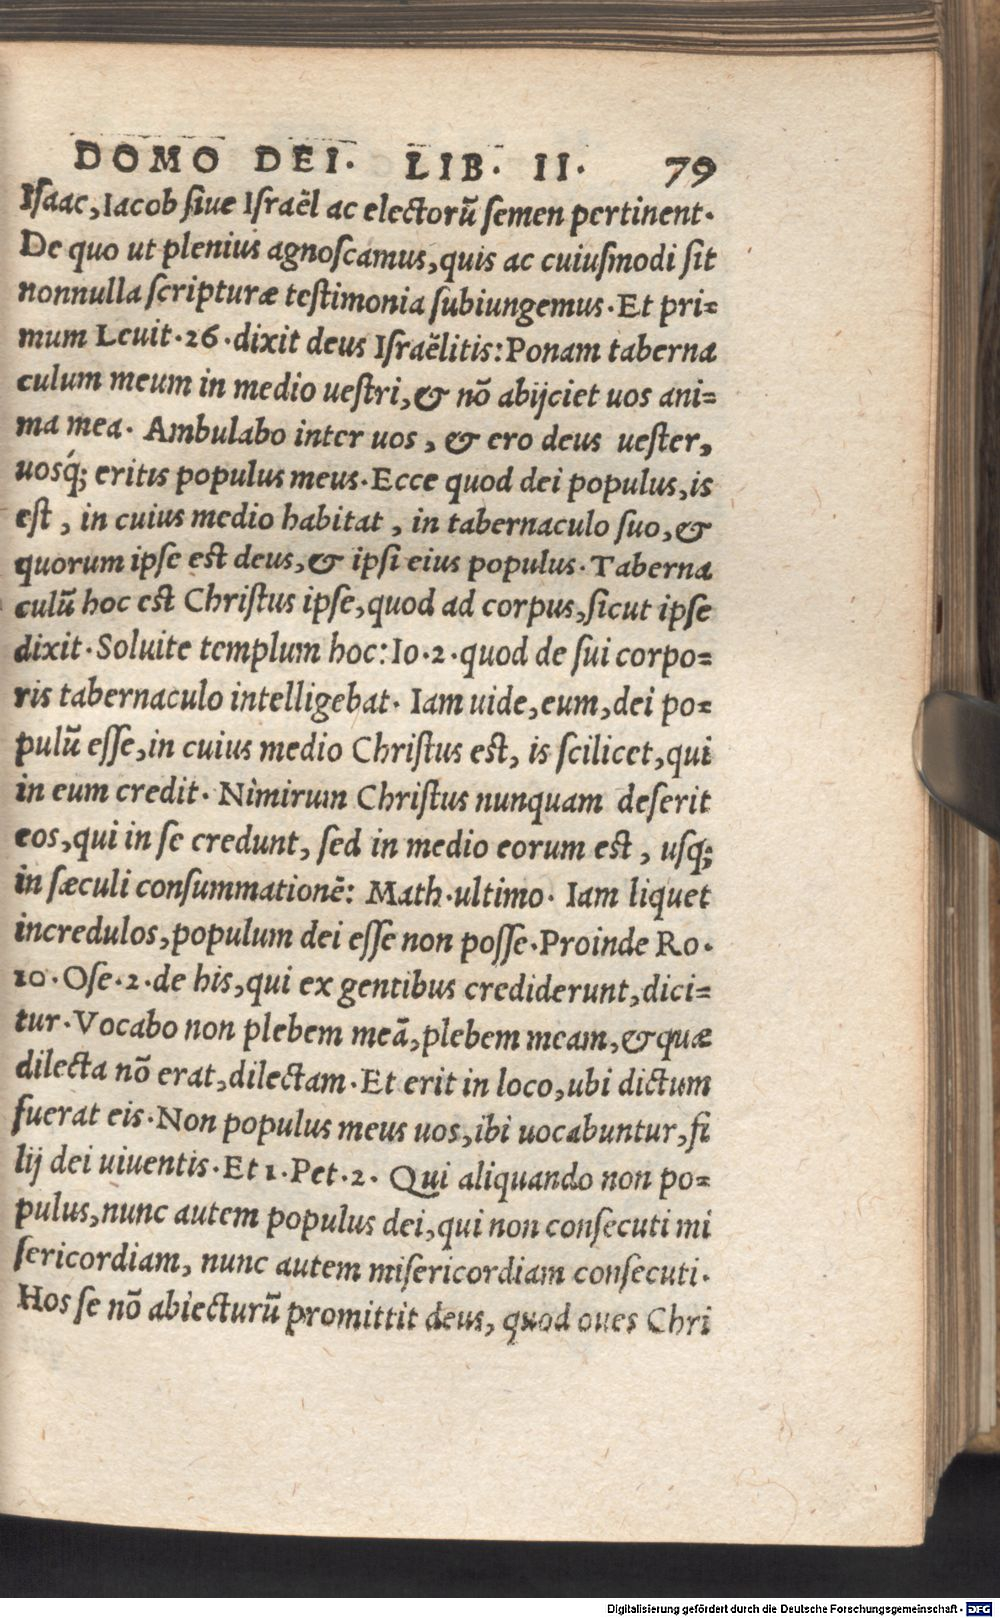 DOMO DEI. LIB. II. 79
Iſaac, Iacob ſiue Iſraël ac electorũ ſemen pertinent.
De quo ut plenius agnoſcamus, quis ac cuiuſmodi ſit
nonnulla ſcripturæ teſtimonia ſubiungemus. Et pri=
mum Leuit. 26. dixit deus Iſraëlitis: Ponam taberna
culum meum in medio ueſtri, & nõ abijciet uos ani=
ma mea. Ambulabo inter uos, & ero deus ueſter,
uosq́; eritis populus meus. Ecce quod dei populus, is
eſt, in cuius medio habitat, in tabernaculo ſuo, &
quorum ipſe eſt deus, & ipſi eius populus. Taberna
culũ hoc eſt Chriſtus ipſe, quod ad corpus, ſicut ipſe
dixit. Soluite templum hoc: Io. 2. quod de ſui corpo=
ris tabernaculo intelligebat. Iam uide, eum, dei po=
pulũ eſſe, in cuius medio Chriſtus eſt, is ſcilicet, qui
in eum credit. Nimirum Chriſtus nunquam deſerit
eos, qui in ſe credunt, ſed in medio eorum eſt, uſq;
in ſæculi conſummationẽ: Math. ultimo. Iam liquet
incredulos, populum dei eſſe non poſſe. Proinde Ro.
10. Oſe. 2. de his, qui ex gentibus crediderunt, dici=
tur. Vocabo non plebem meã, plebem meam, & quæ
dilecta nõ erat, dilectam. Et erit in loco, ubi dictum
fuerat eis. Non populus meus uos, ibi uocabuntur, fi
lij dei uiuentis. Et 1. Pet. 2. Qui aliquando non po=
pulus, nunc autem populus dei, qui non conſecuti mi
ſericordiam, nunc autem miſericordiam conſecuti.
Hos ſe nõ abiecturũ promittit deus, quod oues Chri
Digitalisierung gefördert durch die Deutsche Forschungsgemeinschaft - DFG